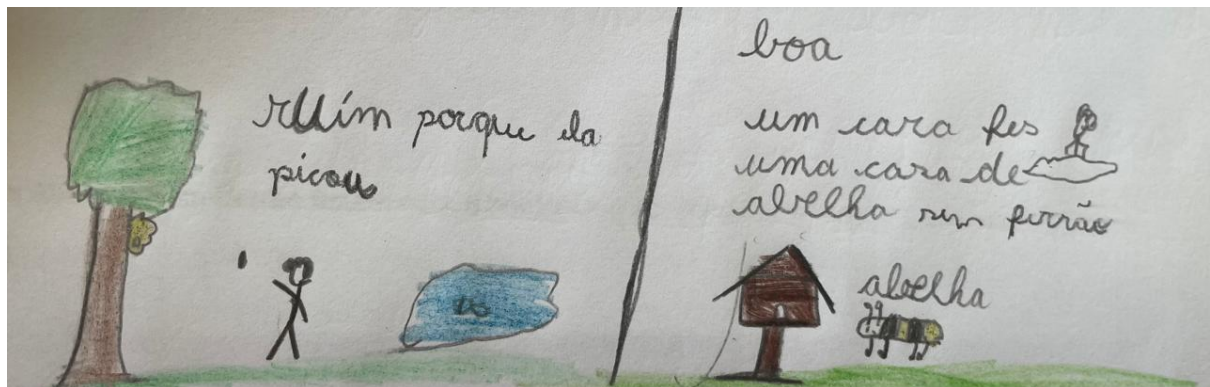 rUim porque ela
picou
boa
um cara fes
uma casa de
abelha sem ferrão
abelha